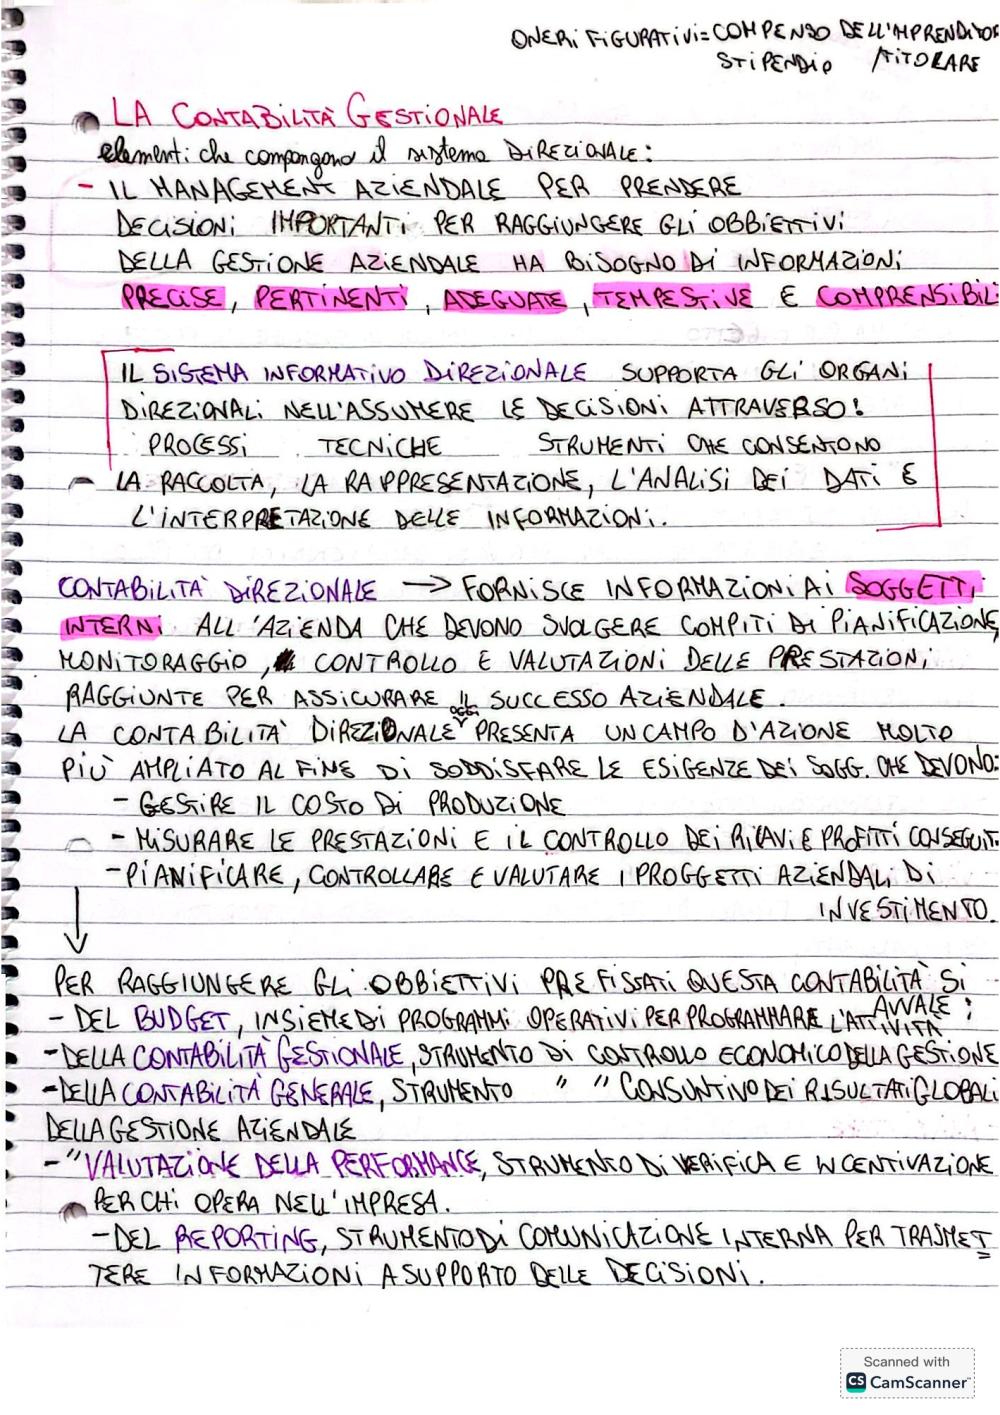 ONERI FIGURATIVI = COMPENSO DELL'IMPRENDITOR
STIPENDIO /TITOLARE
LA CONTABILITÀ GESTIONALE
elementi che compongono il sistema DIREZIONALE:
- IL MANAGEMENT AZIENDALE PER PRENDERE
DECISIONI IMPORTANTI PER RAGGIUNGERE GLI OBBIETTIVI
DELLA GESTIONE AZIENDALE HA BISOGNO DI INFORMAZIONI
PRECISE, PERTINENTI, ADEGUATE, TEMPESTIVE E COMPRENSIBILI
IL SISTEMA INFORMATIVO DIREZIONALE SUPPORTA GLI ORGANI
DIREZIONALI NELL'ASSUMERE LE DECISIONI ATTRAVERSO:
PROCESSI TECNICHE STRUMENTI CHE CONSENTONO
LA RACCOLTA, LA RAPPRESENTAZIONE, L'ANALISI DEI DATI E
L'INTERPRETAZIONE DELLE INFORMAZIONI.
CONTABILITÀ DIREZIONALE → FORNISCE INFORMAZIONI AI SOGGETTI
INTERNI ALL'AZIENDA CHE DEVONO SVOLGERE COMPITI DI PIANIFICAZIONE,
MONITORAGGIO, CONTROLLO E VALUTAZIONI DELLE PRESTAZIONI
RAGGIUNTE PER ASSICURARE IL SUCCESSO AZIENDALE.
LA CONTABILITÀ DIREZIONALE OGGI PRESENTA UN CAMPO D'AZIONE MOLTO
PIÙ AMPLIATO AL FINE DI SODDISFARE LE ESIGENZE DEI SOGG. CHE DEVONO:
- GESTIRE IL COSTO DI PRODUZIONE
- MISURARE LE PRESTAZIONI E IL CONTROLLO DEI RICAVI E PROFITTI CONSEGUITI
- PIANIFICARE, CONTROLLARE E VALUTARE I PROGGETTI AZIENDALI DI
INVESTIMENTO.
PER RAGGIUNGERE GLI OBBIETTIVI PREFISSATI QUESTA CONTABILITÀ SI
AVVALE:
- DEL BUDGET, INSIEME DI PROGRAMMI OPERATIVI PER PROGRAMMARE L'ATTIVITÀ
- DELLA CONTABILITÀ GESTIONALE, STRUMENTO DI CONTROLLO ECONOMICO DELLA GESTIONE
- DELLA CONTABILITÀ GENERALE, STRUMENTO " " CONSUNTIVO DEI RISULTATI GLOBALI
DELLA GESTIONE AZIENDALE
- " VALUTAZIONE DELLA PERFORMANCE, STRUMENTO DI VERIFICA E INCENTIVAZIONE
PER CHI OPERA NELL'IMPRESA.
- DEL REPORTING, STRUMENTO DI COMUNICAZIONE INTERNA PER TRASMET
TERE INFORMAZIONI A SUPPORTO DELLE DECISIONI.
Scanned with
CS CamScanner